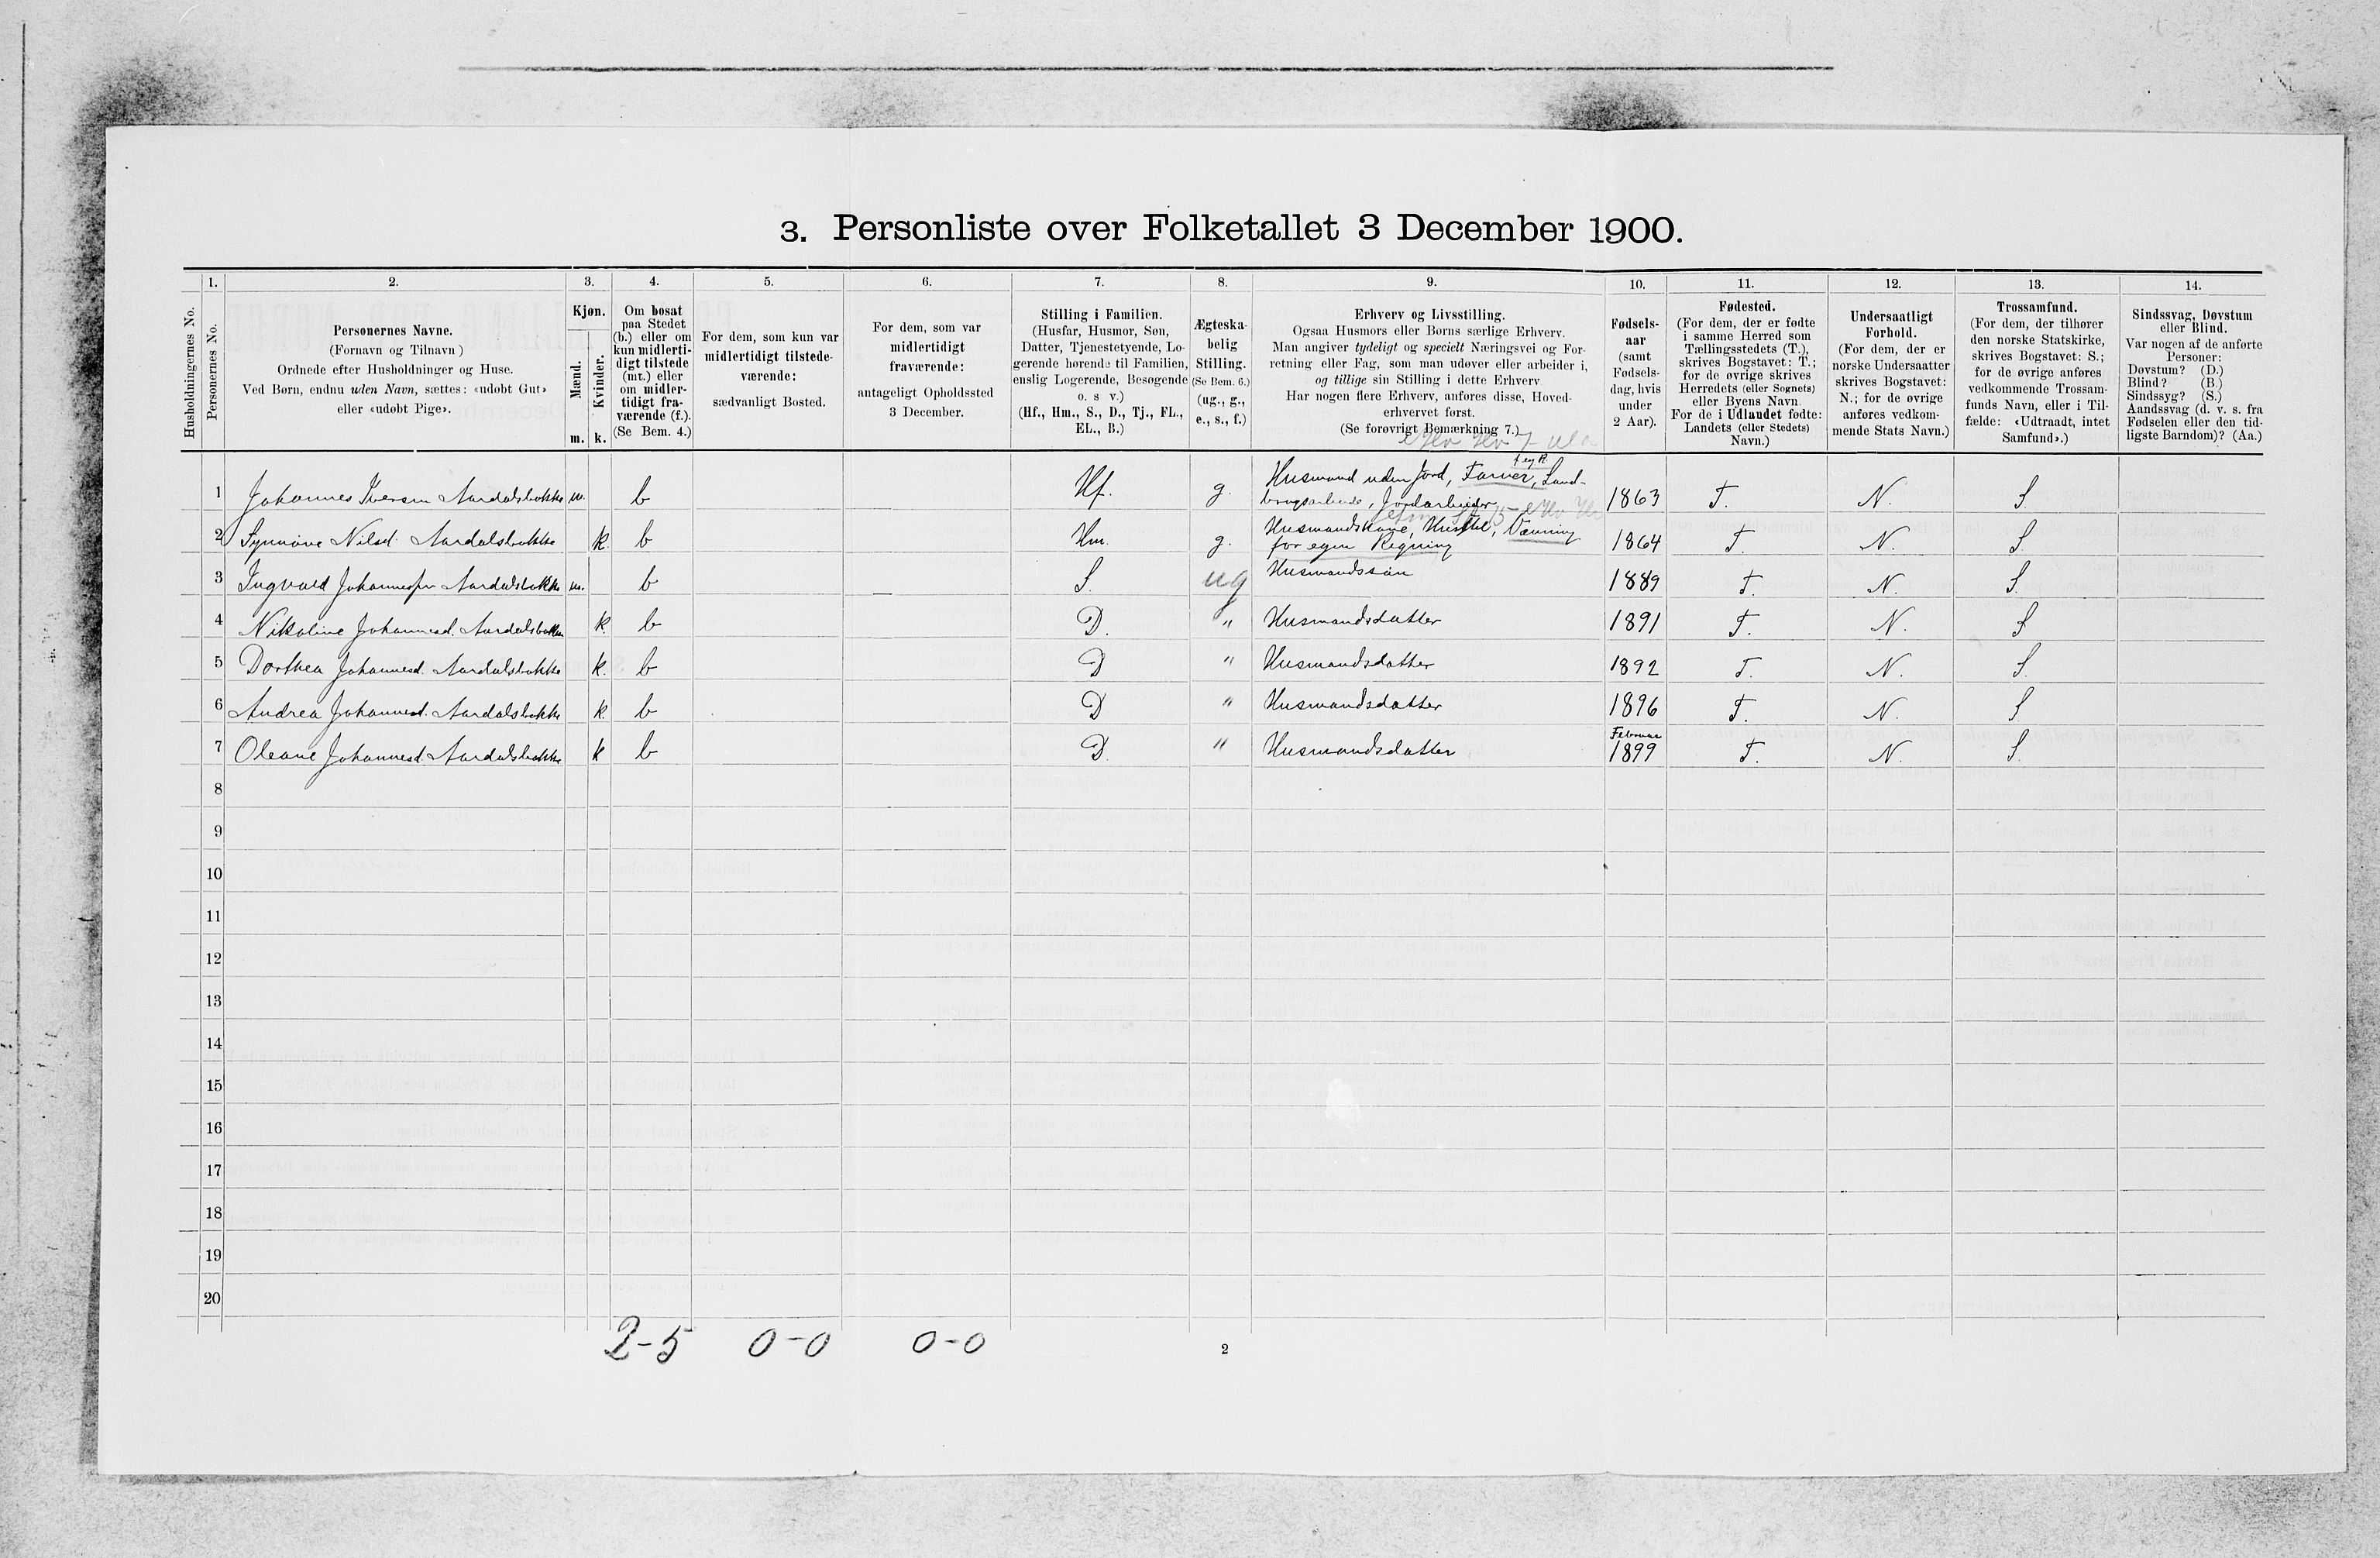 3. Personliste over Folketallet 3 December 1900.
1. 2. 3. 4. 5. 6. 7. 8. 9. 10. 11. 12. 13. 14.
Husholdningernes No.
Personernes No.
Personernes Navne.
(Fornavn og Tilnavn)
Ordnede efter Husholdninger og Huse.
Ved Børn, endnu uden Navn, sættes: «udøbt Gut»
eller «udøbt Pige».
Kjøn.
Mænd.
Kvinder.
m. k.
Om bosat
paa Stedet
(b.) eller om
kun midlerti-
digt tilstede
(mt.) eller
om midler-
tidigt fra-
værende (f.).
(Se Bem. 4.)
For dem, som kun var
midlertidigt tilstede-
værende:
sædvanligt Bosted.
For dem, som var
midlertidigt
fraværende:
antageligt Opholdssted
3 December.
Stilling i Familien.
(Husfar, Husmor, Søn,
Datter, Tjenestetyende, Lo-
gerende hørende til Familien,
enslig Logerende, Besøgende
o. s v.)
(Hf., Hm., S., D., Tj., FL.,
EL., B.)
Ægteska-
belig
Stilling.
(Se Bem. 6.)
(ug., g.,
e., s., f.)
Erhverv og Livsstilling.
Ogsaa Husmors eller Børns særlige Erhverv.
Man angiver tydeligt og specielt Næringsvei og For-
retning eller Fag, som man udøver eller arbeider i,
og tillige sin Stilling i dette Erhverv.
Har nogen flere Erhverv, anføres disse, Hoved-
erhvervet først.
(Se forøvrigt Bemærkning 7.)
Fødsels-
aar
(samt
Fødsels-
dag, hvis
under
2 Aar).
Fødested.
(For dem, der er fødte
i samme Herred som
Tællingsstedets (T.),
skrives Bogstavet: T.;
for de øvrige skrives
Herredets (eller Sognets)
eller Byens Navn.
For de i Udlandet fødte:
Landets (eller Stedets)
Navn.)
Undersaatligt
Forhold.
(For dem, der er
norske Undersaatter
skrives Bogstavet:
N.; for de øvrige
anføres vedkom-
mende Stats Navn.)
Trossamfund.
(For dem, der tilhører
den norske Statskirke,
skrives Bogstavet: S.;
for de øvrige anføres
vedkommende Trossam-
funds Navn, eller i Til-
fælde: «Udtraadt, intet
Samfund».)
Sindssvag, Døvstum
eller Blind.
Var nogen af de anførte
Personer:
Døvstum? (D.)
Blind? (B.)
Sindssyg? (S.)
Aandssvag (d. v. s. fra
Fødselen eller den tid-
ligste Barndom)? (Aa.)
1 Johannes Iversen Aardalsbakke m. b Hf. g. Husmand uden Jord, Farver, Land-
brugsarbeide, Jordarbeider 1863 T. N. S
2 Synnøve Nilsd. Aardalsbakke k. b Hm. g. Husmandskone, Husstel, Vævning
for egen Regning 1864 T. N. S
3 Ingvald Johannessen Aardalsbakke m. b S. ug Husmandssøn 1889 T. N. S.
4 Nikoline Johannesd. Aardalsbakke k. b D. " Husmandsdatter 1891 T. N. S
5 Dorthea Johannesd. Aardalsbakke k. b D " Husmandsdatter 1892 T. N. S.
6 Andrea Johannesd. Aardalsbakke k. b D " Husmandsdatter 1896 T. N. S
7 Oleane Johannesd. Aardalsbakke k b D. " Husmandsdatter Februar
1899 T. N. S.
8
9
10
11
12
13
14
15
16
17
18
19
20
2-5 0-0 0-0
2